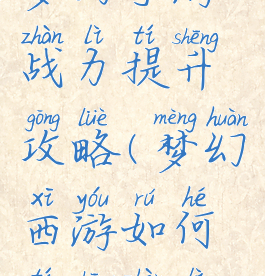 zhàn lì tí shēng
战力提升
gōng lüè mèng huàn
攻略(梦幻
xī yóu rú hé
西游如何